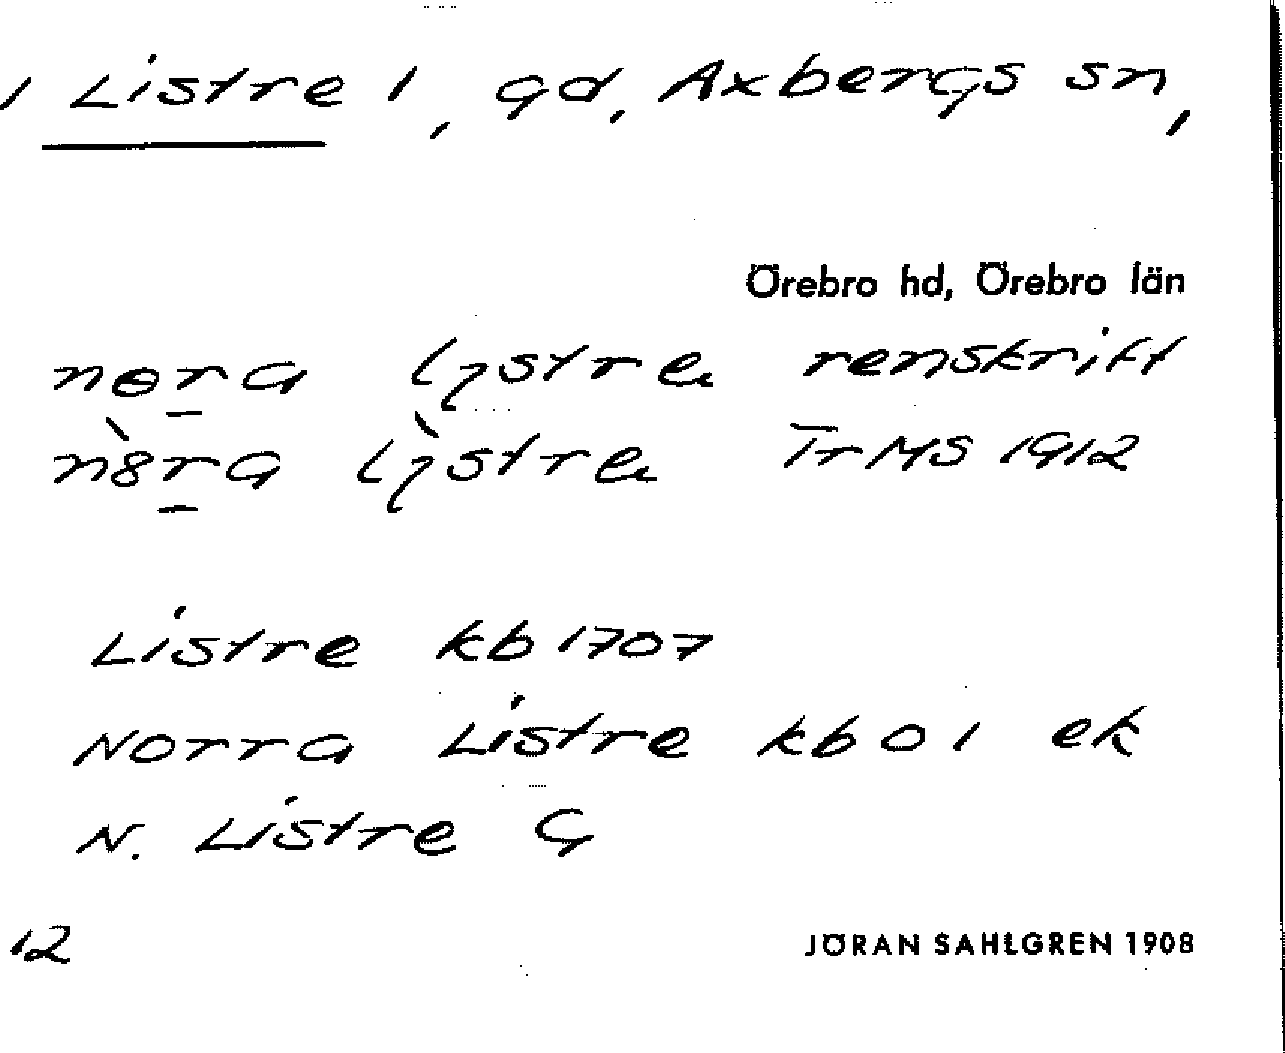 / Listre /, gd, Axbergs sn,
Örebro hd, Örebro län
nɵra lystre renskrift
n8ra lystre TrMS 1912
Listre kb 1707
Norra Listre kb 01 ek
N. Listre G
12 JÖRAN SAHLGREN 1908